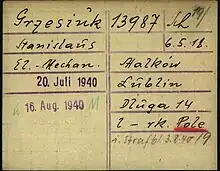 Grzesiuk 13987
Stanislaus 6.5.18.
El.-Mechan. Małków
20. Juli 1940 Lublin
16. Aug. 1940 M Dluga 14
l - rk. Pole
i. Strafbl. 3.8.40 19